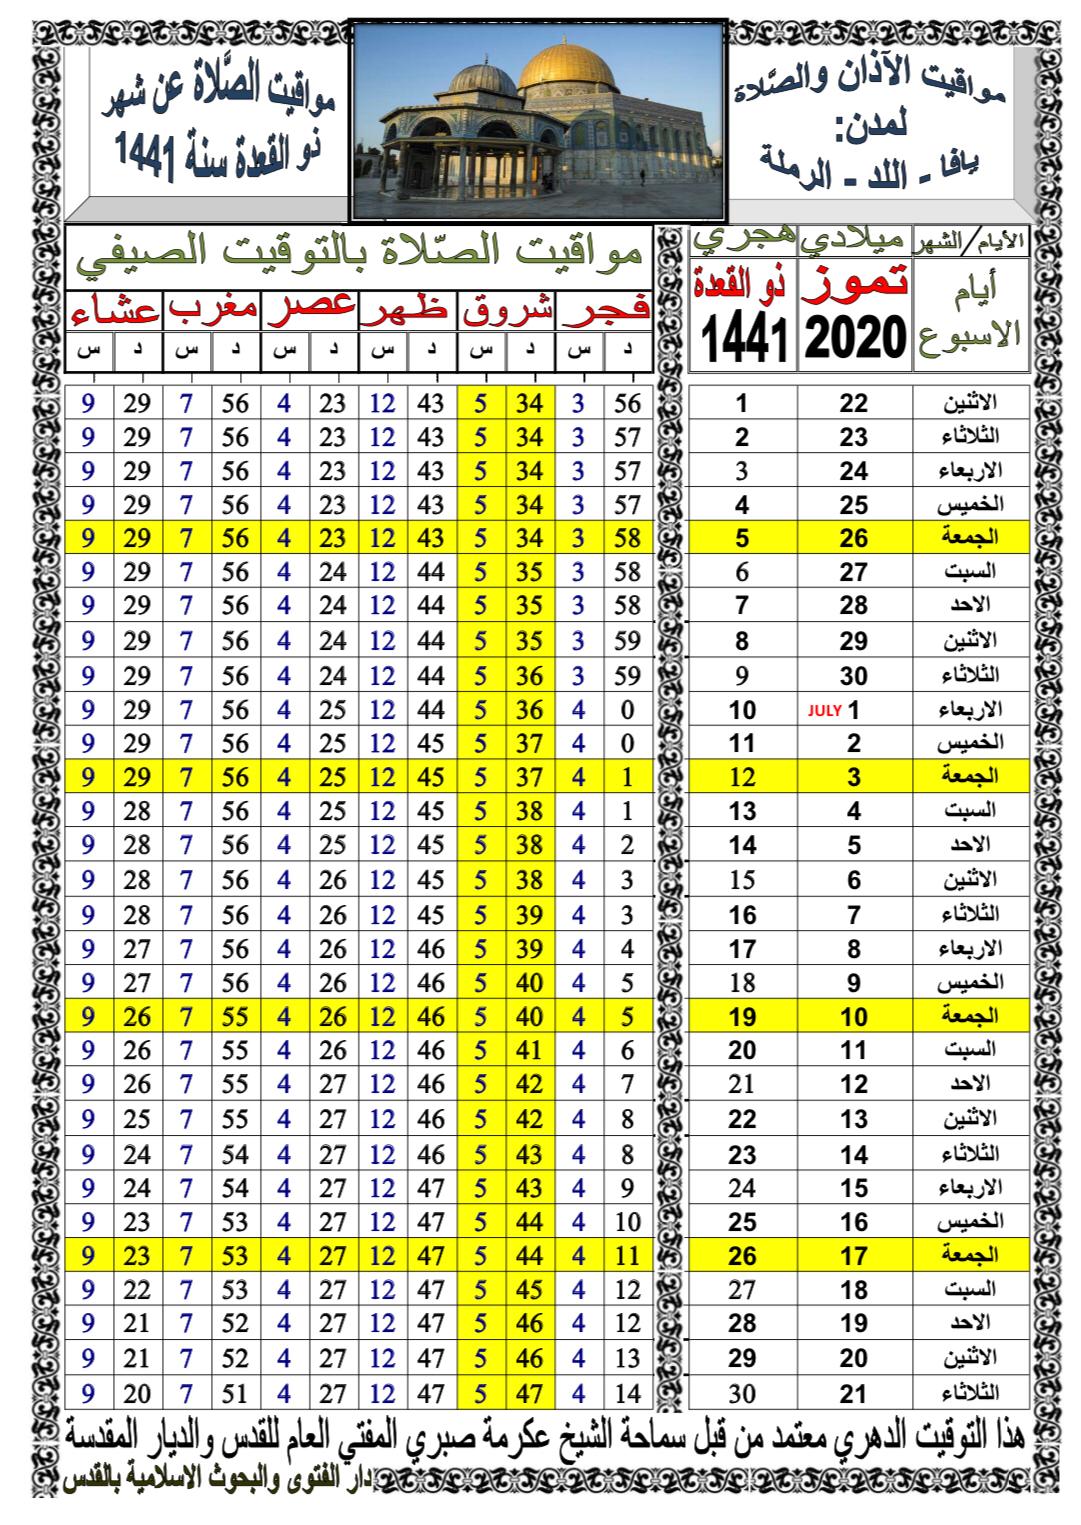 مواقيت الآذان والصَّلاة
لمدن:
يافا - اللد - الرملة
مواقيت الصَّلاة عن شهر
ذو القعدة سنة 1441
الأيام/الشهر ميلادي هجري
أيام الاسبوع تموز 2020 ذو القعدة 1441
مواقيت الصّلاة بالتوقيت الصيفي
فجر شروق ظهر عصر مغرب عشاء
د س د س د س د س د س د س
الاثنين 22 1 56 3 34 5 43 12 23 4 56 7 29 9
الثلاثاء 23 2 57 3 34 5 43 12 23 4 56 7 29 9
الاربعاء 24 3 57 3 34 5 43 12 23 4 56 7 29 9
الخميس 25 4 57 3 34 5 43 12 23 4 56 7 29 9
الجمعة 26 5 58 3 34 5 43 12 23 4 56 7 29 9
السبت 27 6 58 3 35 5 44 12 24 4 56 7 29 9
الاحد 28 7 58 3 35 5 44 12 24 4 56 7 29 9
الاثنين 29 8 59 3 35 5 44 12 24 4 56 7 29 9
الثلاثاء 30 9 59 3 36 5 44 12 24 4 56 7 29 9
الاربعاء JULY 1 10 0 4 36 5 44 12 25 4 56 7 29 9
الخميس 2 11 0 4 37 5 45 12 25 4 56 7 29 9
الجمعة 3 12 1 4 37 5 45 12 25 4 56 7 29 9
السبت 4 13 1 4 38 5 45 12 25 4 56 7 28 9
الاحد 5 14 2 4 38 5 45 12 25 4 56 7 28 9
الاثنين 6 15 3 4 38 5 45 12 26 4 56 7 28 9
الثلاثاء 7 16 3 4 39 5 45 12 26 4 56 7 28 9
الاربعاء 8 17 4 4 39 5 46 12 26 4 56 7 27 9
الخميس 9 18 5 4 40 5 46 12 26 4 56 7 27 9
الجمعة 10 19 5 4 40 5 46 12 26 4 55 7 26 9
السبت 11 20 6 4 41 5 46 12 26 4 55 7 26 9
الاحد 12 21 7 4 42 5 46 12 27 4 55 7 26 9
الاثنين 13 22 8 4 42 5 46 12 27 4 55 7 25 9
الثلاثاء 14 23 8 4 43 5 46 12 27 4 54 7 24 9
الاربعاء 15 24 9 4 43 5 47 12 27 4 54 7 24 9
الخميس 16 25 10 4 44 5 47 12 27 4 53 7 23 9
الجمعة 17 26 11 4 44 5 47 12 27 4 53 7 23 9
السبت 18 27 12 4 45 5 47 12 27 4 53 7 22 9
الاحد 19 28 12 4 46 5 47 12 27 4 52 7 21 9
الاثنين 20 29 13 4 46 5 47 12 27 4 52 7 21 9
الثلاثاء 21 30 14 4 47 5 47 12 27 4 51 7 20 9
هذا التوقيت الدهري معتمد من قبل سماحة الشيخ عكرمة صبري المفتي العام للقدس والديار المقدسة
دار الفتوى والبحوث الاسلامية بالقدس